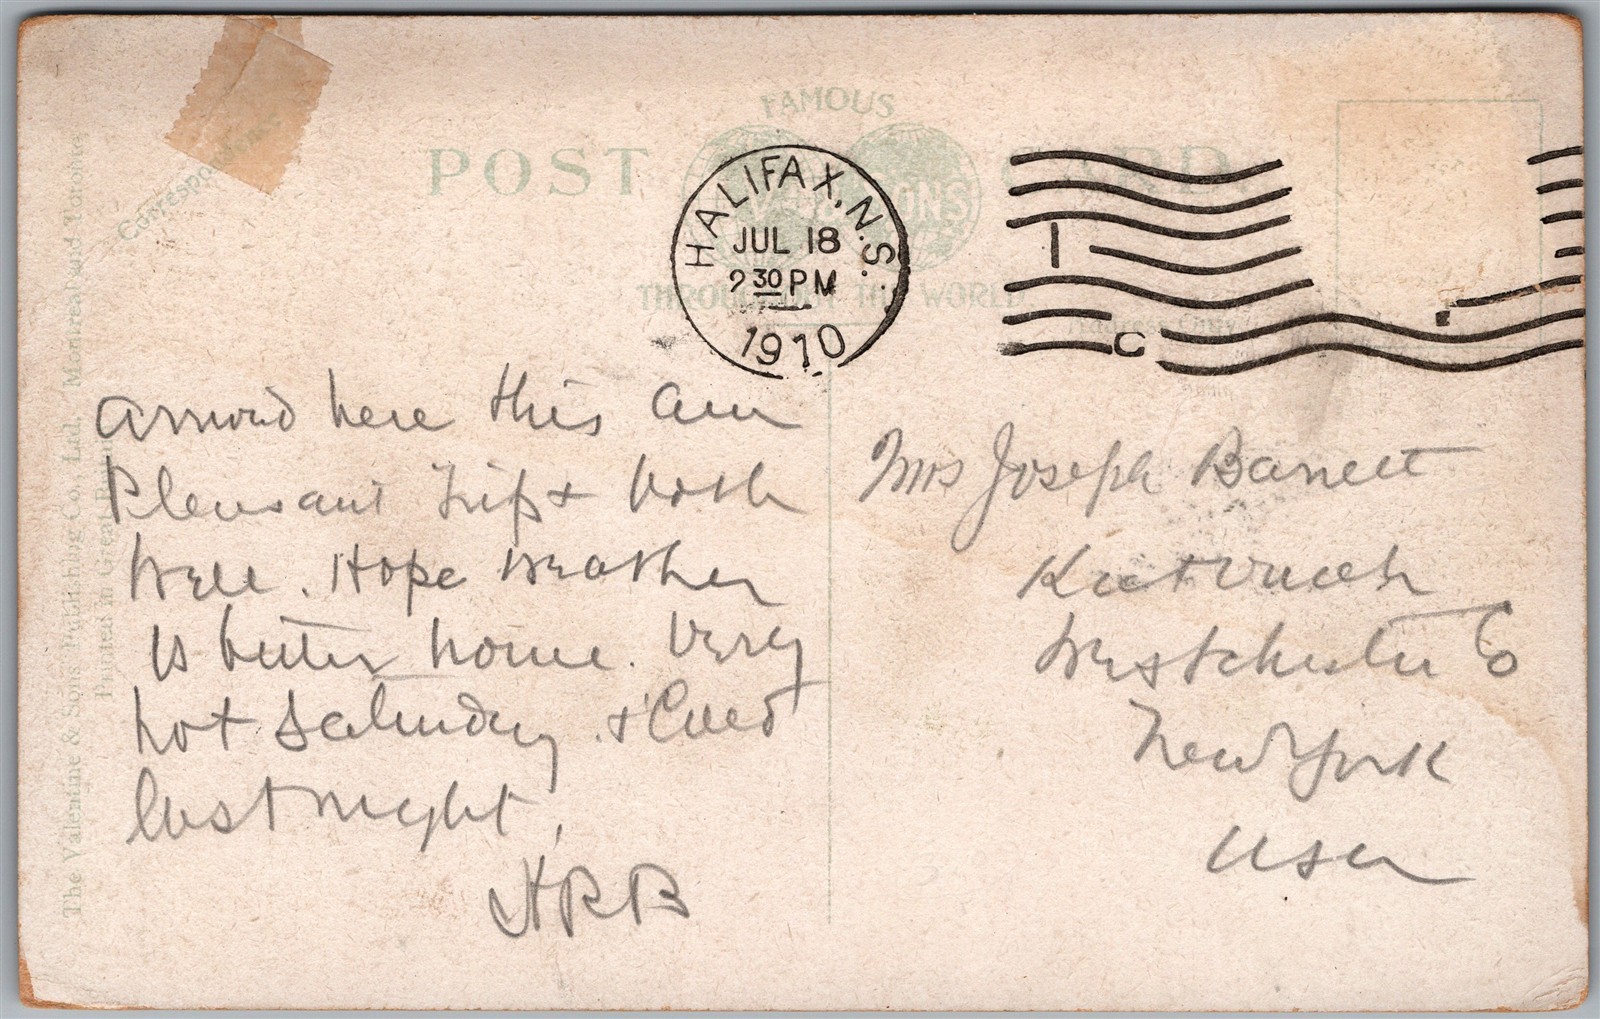 FAMOUS
POST CARD
VALENTINE & SONS
THROUGHOUT THE WORLD
Correspondence
Address Only
HALIFAX, N.S.
JUL 18
2 30 PM
1910
I
C
The Valentine & Sons Publishing Co., Ltd., Montreal and Toronto.
Printed in Great Britain
Arrived here this am
Pleasant trip & both
well. Hope weather
is better home. Very
hot Saturday & Cool
last night.
HRB
Mrs Joseph Barrett
Westchester Co
New York
USA